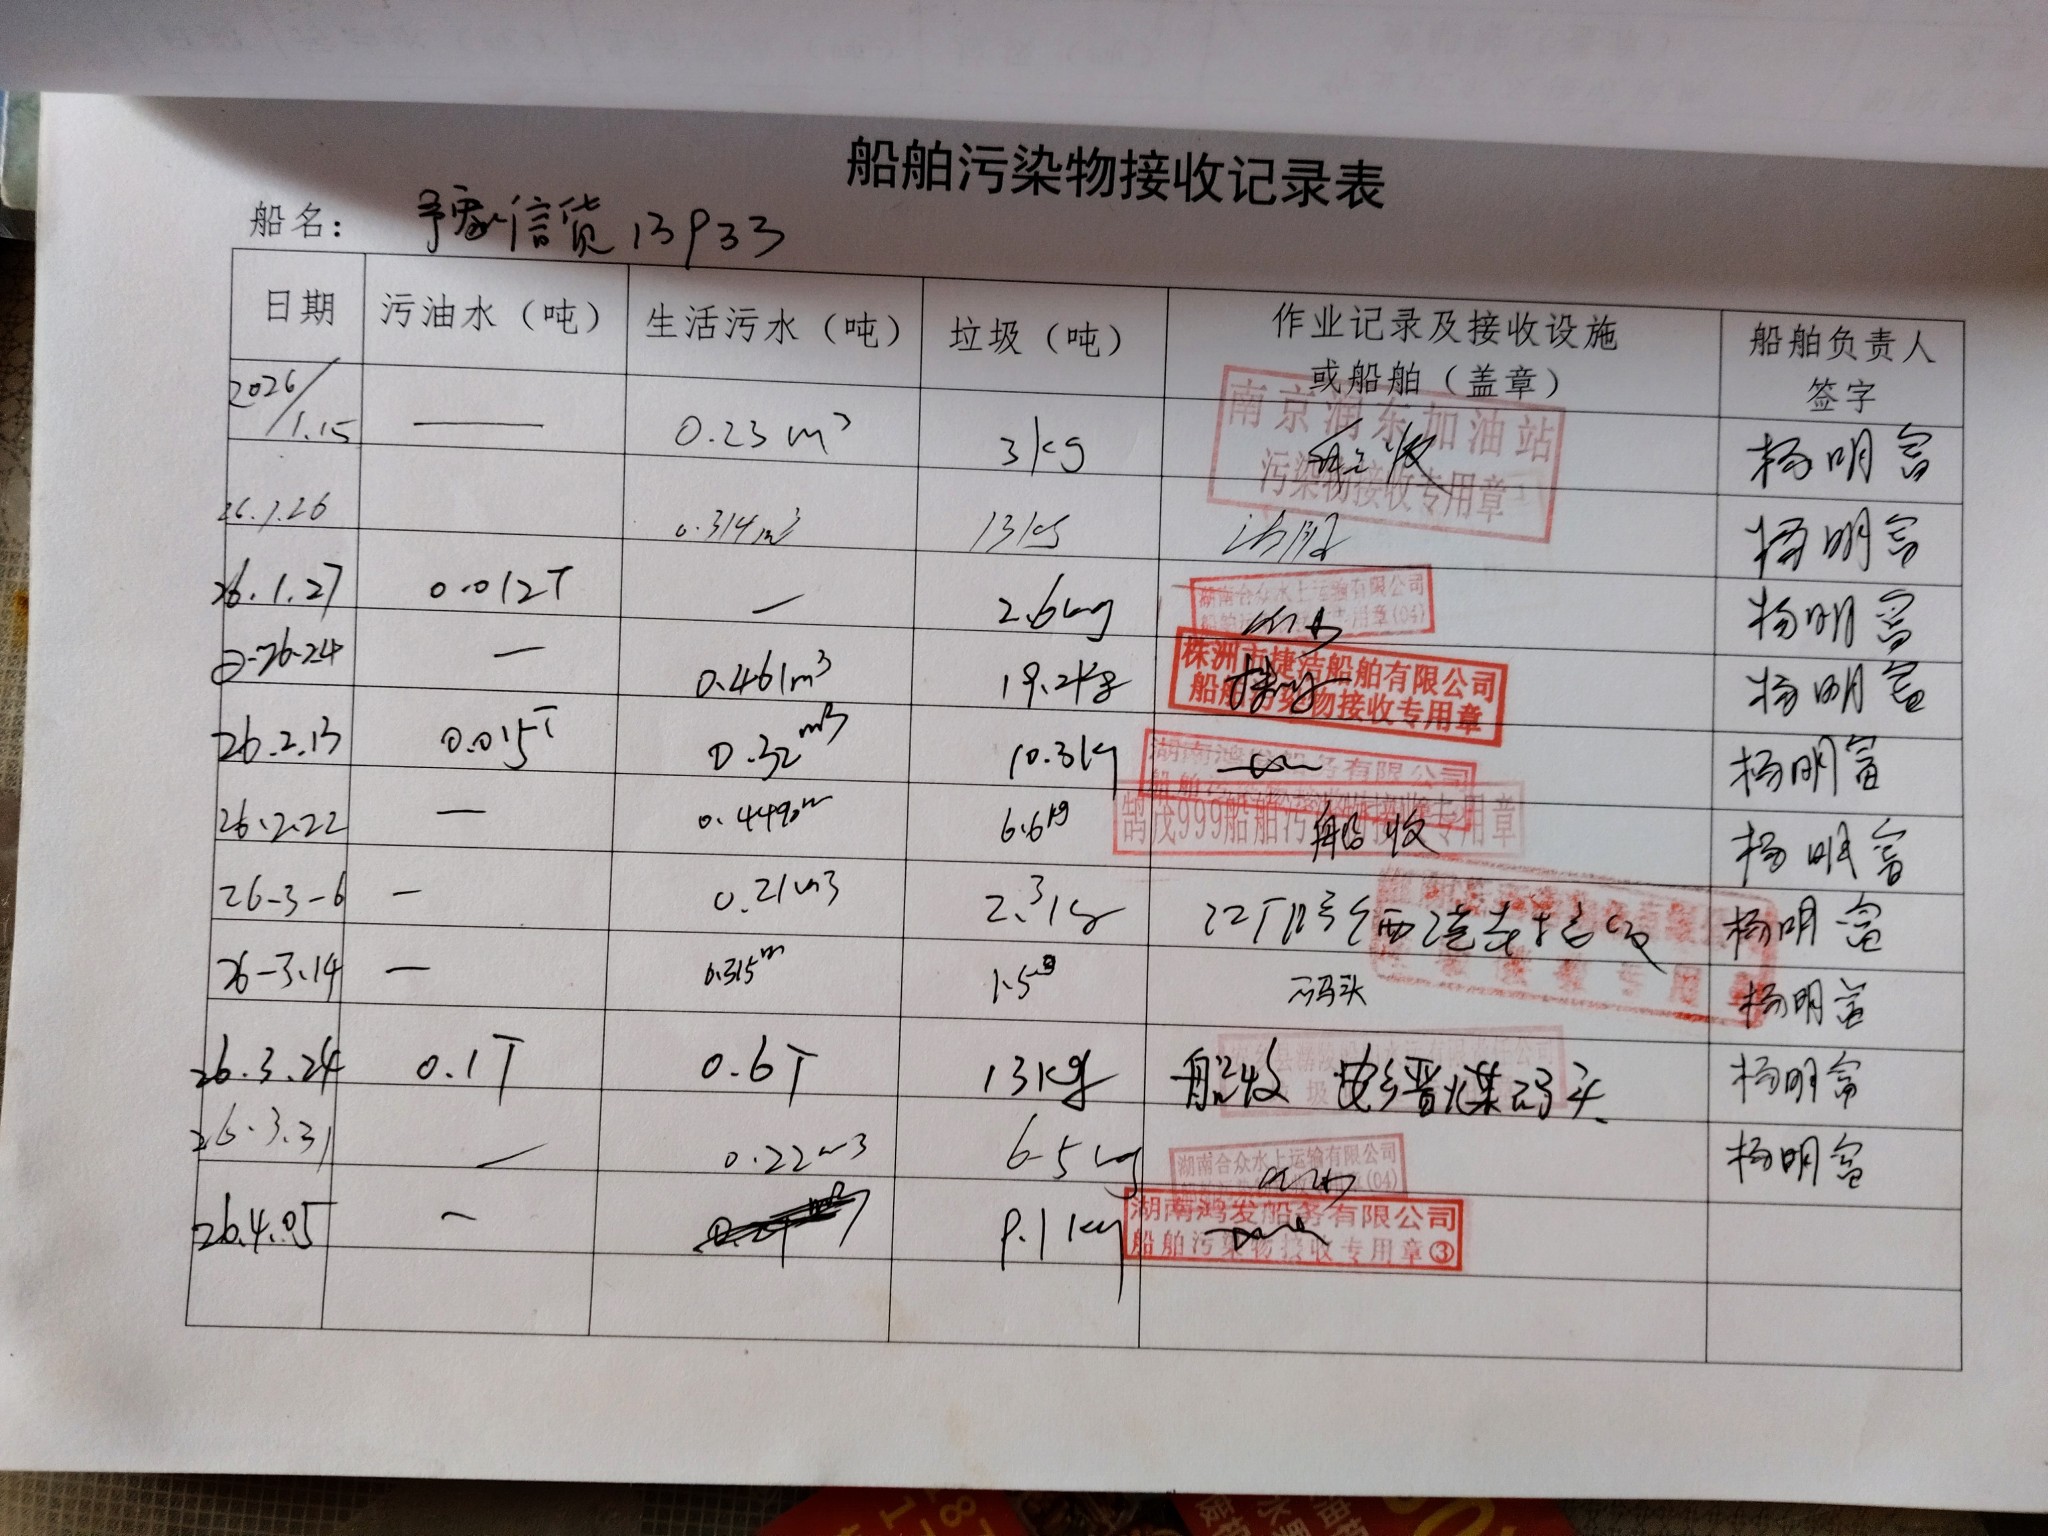 船舶污染物接收记录表
船名： 豫信货13933
日期 污油水（吨） 生活污水（吨） 垃圾（吨） 作业记录及接收设施或船舶（盖章） 船舶负责人签字
2026/1.15 — 0.23m³ 3kg 南京润东加油站 污染物接收专用章 杨明富
26.1.26 0.314m³ 13kg 杨明富
26.1.27 0.012T — 2.6kg 湖南合众水上运输有限公司 用章(04) 杨明富
26.2.4 — 0.461m³ 19.2kg 株洲市捷洁船舶有限公司 船舶污染物接收专用章 杨明富
26.2.13 0.015T 0.32m³ 10.3kg 湖南鸿发船务有限公司 杨明富
26.2.22 — 0.449 6.6kg 鹄茂999船舶污染物接收专用章 船收 杨明富
26-3-6 — 0.21m³ 2.3kg 杨明富
26-3.14 — 0.315m 1.5 码头 专用 杨明富
26.3.24 0.1T 0.6T 13kg 船收 晋煤码头 杨明富
26.3.31 — 0.22m3 6.5kg 湖南合众水上运输有限公司 (04) 杨明富
26.4.05 — 9.1kg 湖南鸿发船务有限公司 船舶污染物接收专用章③